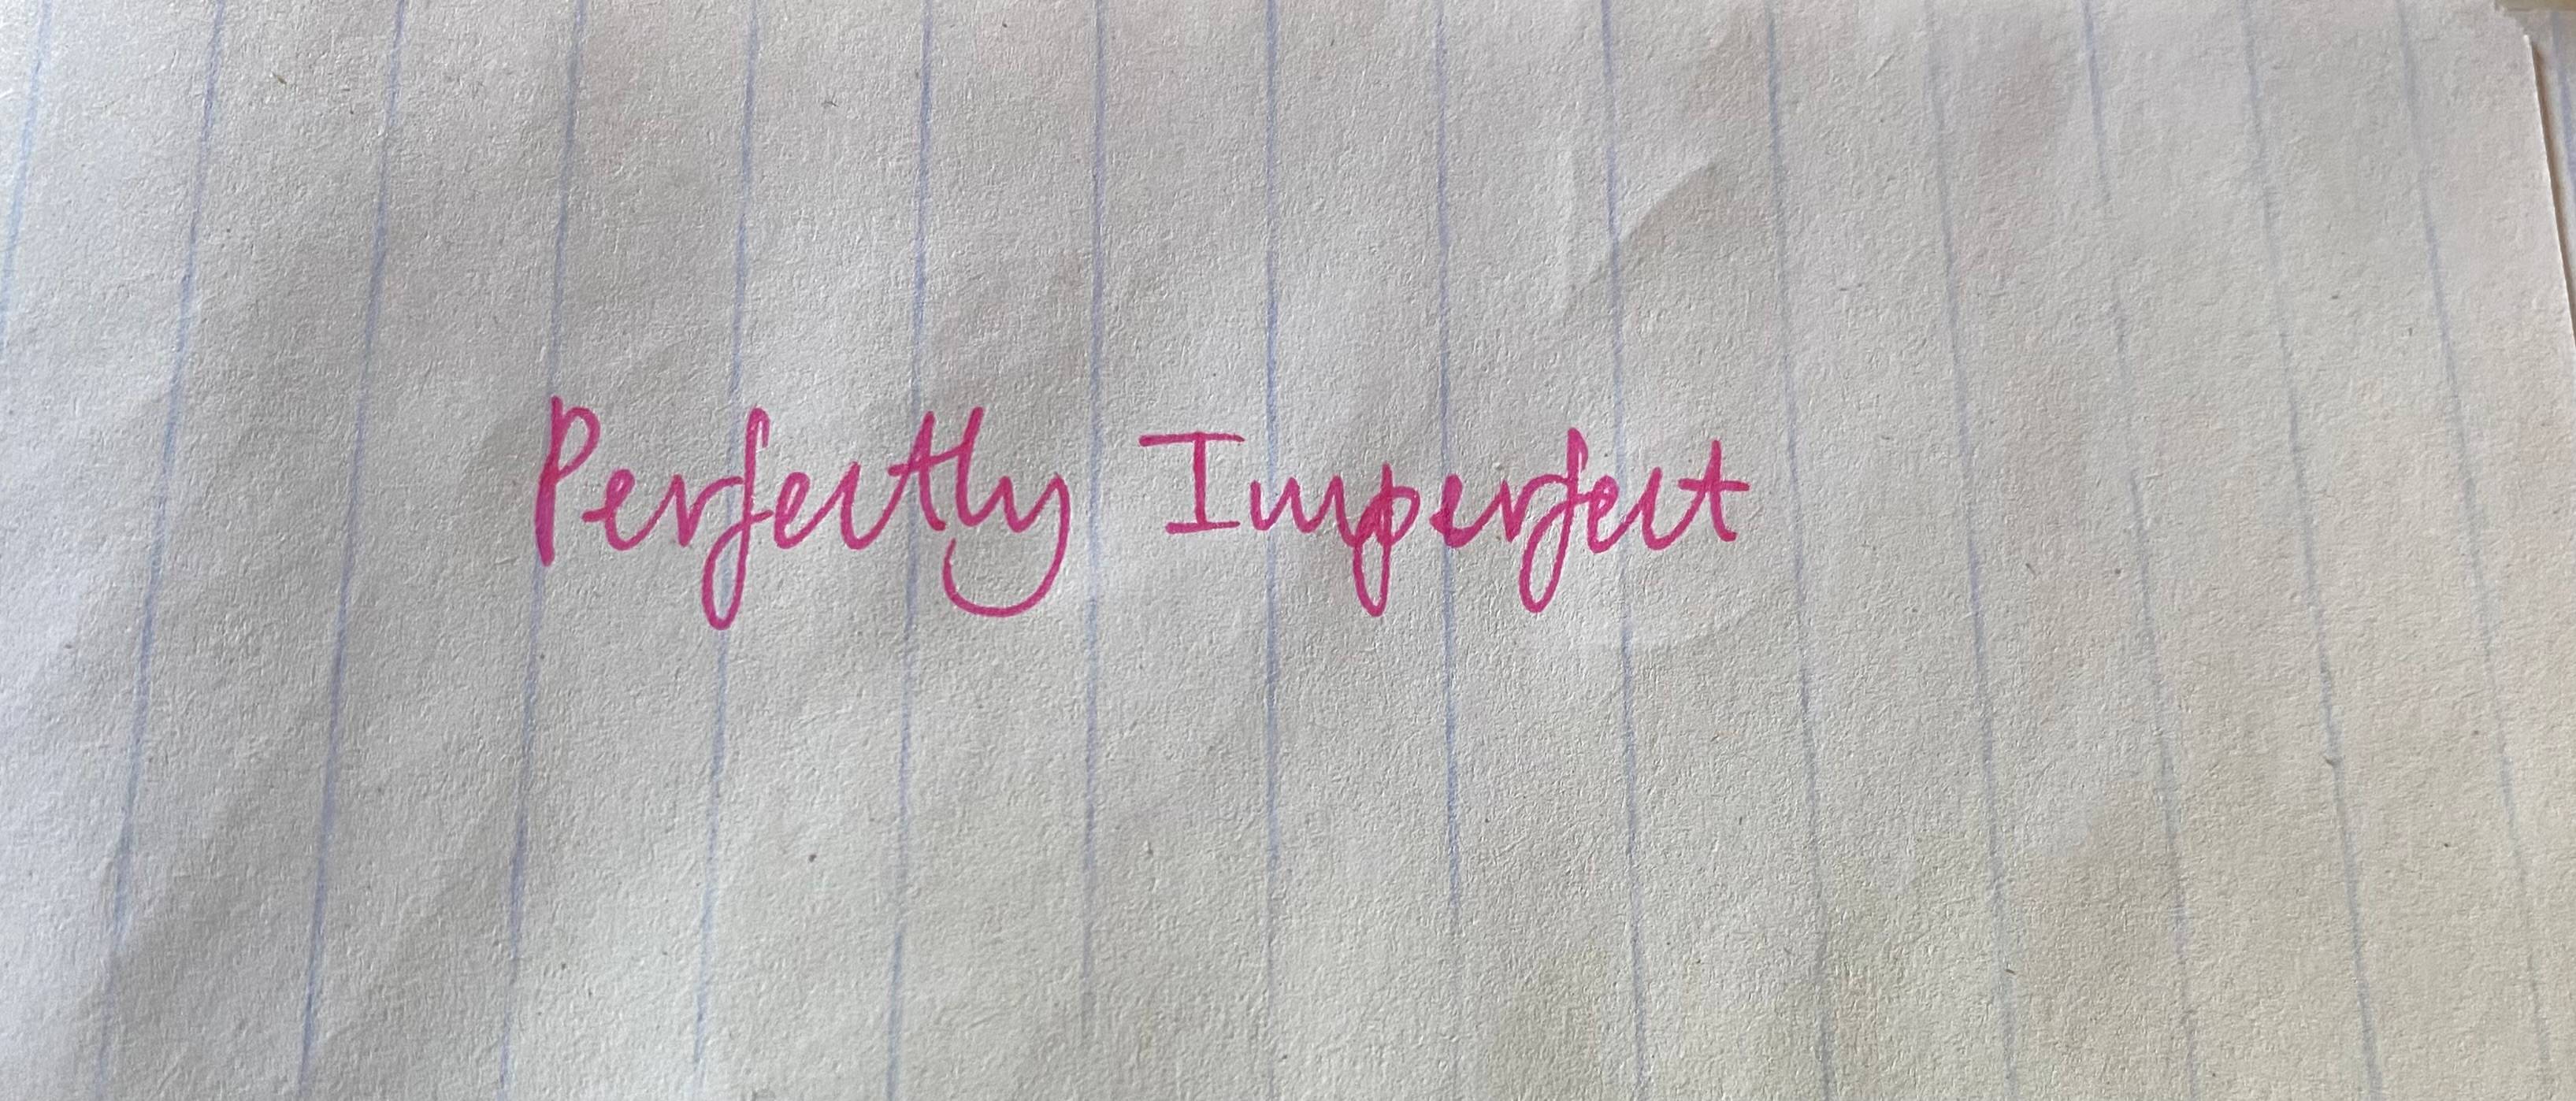 Perfectly Imperfect